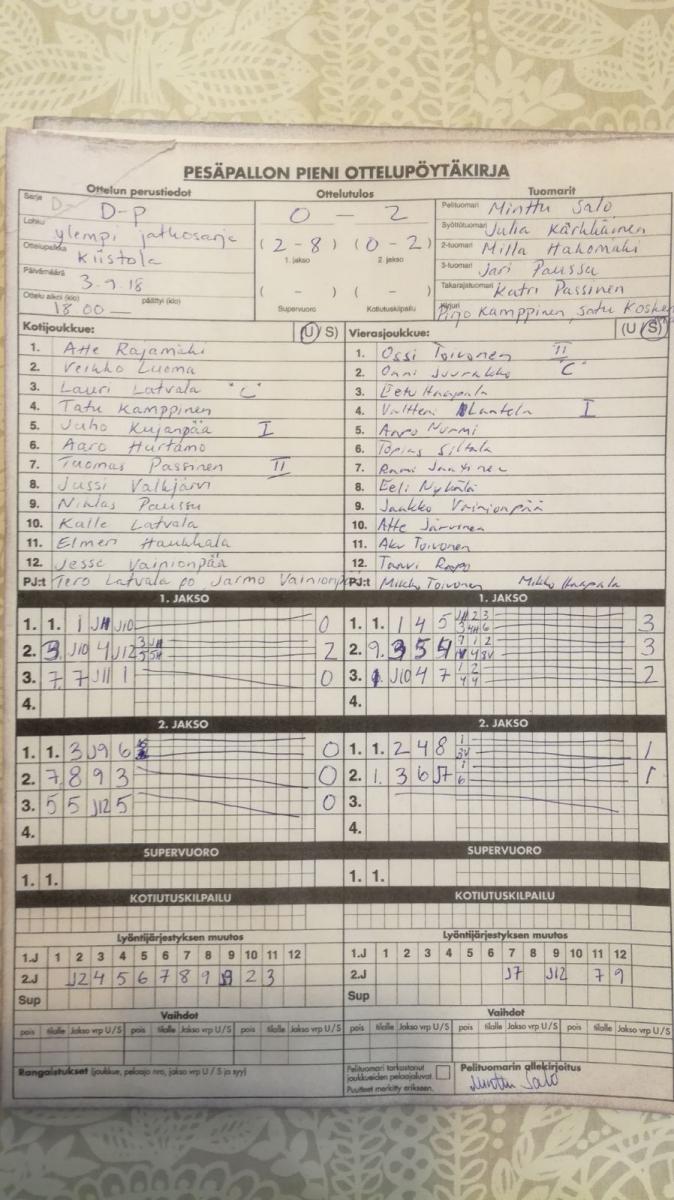 PESÄPALLON PIENI OTTELUPÖYTÄKIRJA
Ottelun perustiedot Ottelutulos Tuomarit
Sarja D-P 0 - 2 Pelituomari Minttu Salo
Lohko ylempi jatkosarja (2-8) (0-2) Syöttötuomari Julia Kärkkäinen
Ottelupaikka Kiistola 1. jakso 2. jakso 2-tuomari Milla Hakomäki
Päivämäärä 3.9.18 ( - ) ( - ) 3-tuomari Jari Paussu
Ottelu alkoi (klo) 18.00 — päättyi (klo) Supervuoro Kotiutuskilpailu Takarajatuomari Katri Passinen
Kirjuri Pirjo Kamppinen, Satu Kosken
Kotijoukkue: (U/S) Vierasjoukkue: (U/S)
1. Atte Rajamäki 1. Ossi Toivonen II
2. Veikko Luoma 2. Onni Juurakko "C"
3. Lauri Latvala "C" 3. Eetu Haapala
4. Tatu Kamppinen 4. Valtteri I
5. Juho Kujanpää I 5. Aapo Nurmi
6. Aaro Hurtamo 6. Topias Siltala
7. Tuomas Passinen II 7. Rami
8. Jussi Valkjärvi 8. Eeli Nykälä
9. Niklas Paussu 9. Jaakko Vainionpää
10. Kalle Latvala 10. Atte Järvinen
11. Elmeri Haukkala 11. Aku Toivonen
12. Jesse Vainionpää 12. Taavi Raspo
PJ:t Tero Latvala po Jarmo Vainionpää PJ:t Mikko Toivonen Mikko Haapala
1. JAKSO 1. JAKSO
1. 1. 1 J11 J10 0 1. 1. 1 4 5 3
2. 3. J10 4 J12 2 2. 9. 3 5 4 3
3. 7. 7 J11 1 0 3. 1. J10 4 7 2
4. 4.
2. JAKSO 2. JAKSO
1. 1. 3 J9 6 0 1. 1. 2 4 8 1
2. 7. 8 9 3 0 2. 1. 3 6 J7 1
3. 5 5 J12 5 0 3.
4. 4.
SUPERVUORO SUPERVUORO
1. 1. 1. 1.
KOTIUTUSKILPAILU KOTIUTUSKILPAILU
Lyöntijärjestyksen muutos Lyöntijärjestyksen muutos
1.J 1 2 3 4 5 6 7 8 9 10 11 12 1.J 1 2 3 4 5 6 7 8 9 10 11 12
2.J J2 4 5 6 7 8 9 2 3 2.J J7 J12 7 9
Sup Sup
Vaihdot Vaihdot
pois tilalle Jakso vrp U/S pois tilalle Jakso vrp U/S pois tilalle Jakso vrp U/S pois tilalle Jakso vrp U/S
Rangaistukset (joukkue, pelaaja nro, jakso vrp U / S ja syy) Pelituomari tarkastanut joukkueiden pelaajaluvat. Puutteet merkitty erikseen. Pelituomarin allekirjoitus
Minttu Salo